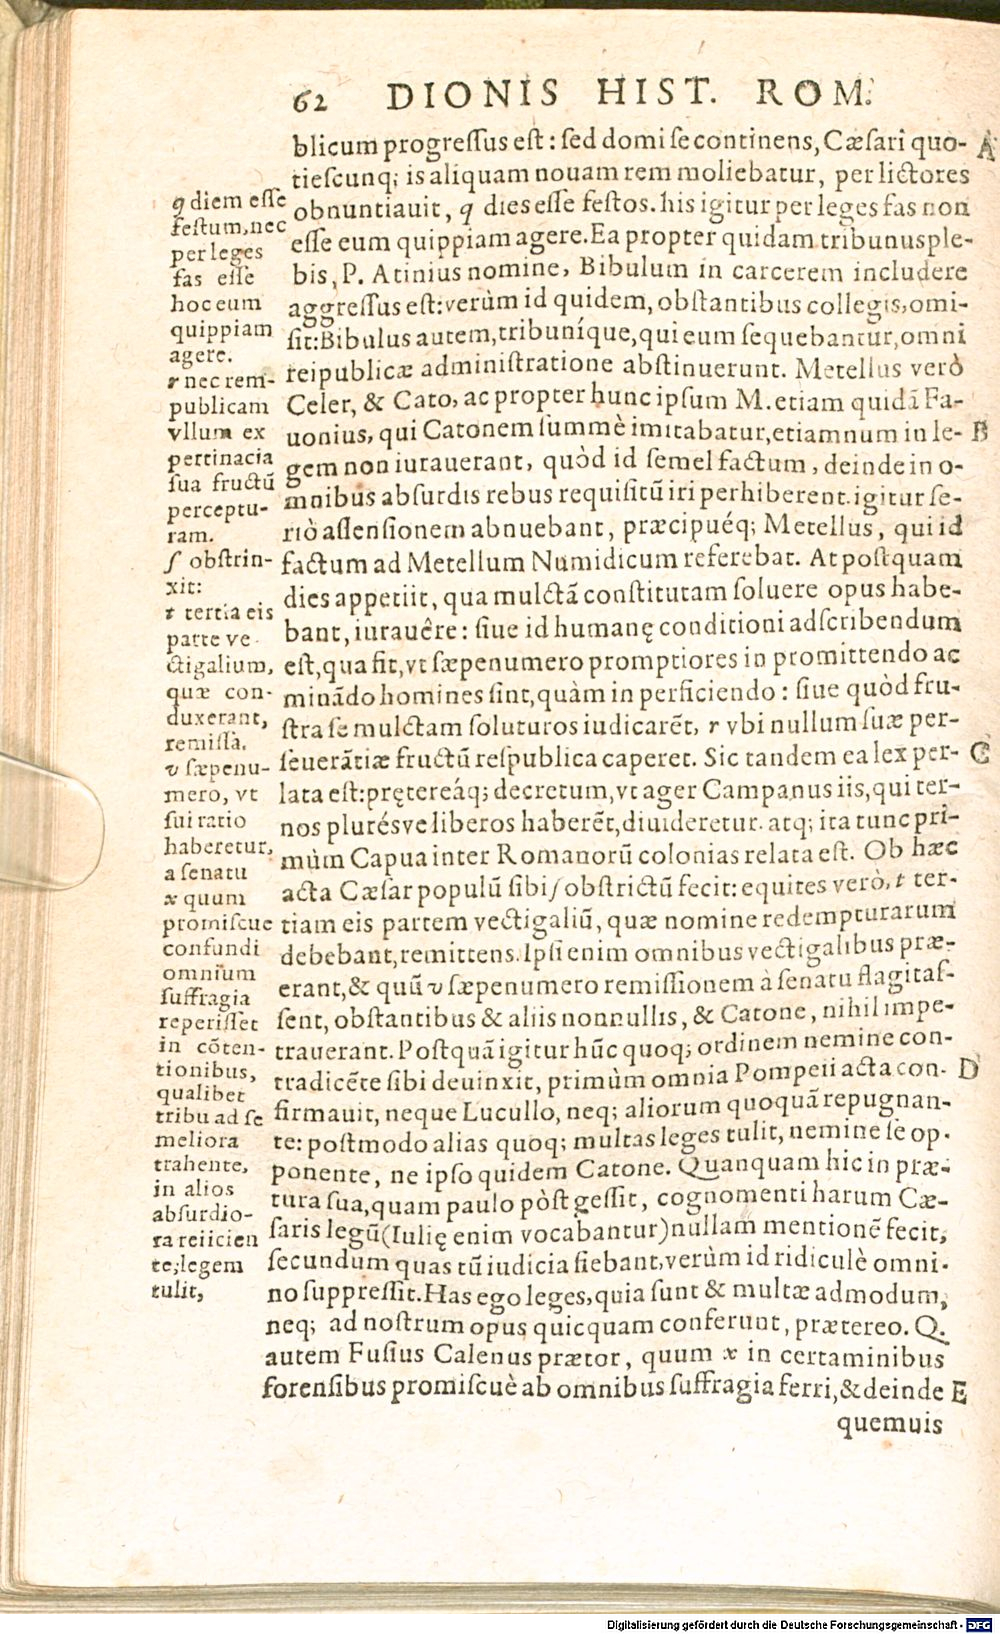 62 DIONIS HIST. ROM.
blicum progressus est: sed domi se continens, Cæsari quo- A
tiescunq; is aliquam nouam rem moliebatur, per lictores
obnuntiauit, q dies esse festos. his igitur per leges fas non
esse eum quippiam agere. Ea propter quidam tribunus ple-
bis, P. Atinius nomine, Bibulum in carcerem includere
aggressus est: verùm id quidem, obstantibus collegis, omi-
sit: Bibulus autem, tribuníque, qui eum sequebantur, omni
reipublicæ administratione abstinuerunt. Metellus verò
Celer, & Cato, ac propter hunc ipsum M. etiam quidã Fa-
uonius, qui Catonem summè imitabatur, etiamnum in le- B
gem non iurauerant, quòd id semel factum, deinde in o-
mnibus absurdis rebus requisitũ iri perhiberent. igitur se-
riò assensionem abnuebant, præcipuéq; Metellus, qui id
factum ad Metellum Numidicum referebat. At postquam
dies appetiit, qua mulctã constitutam soluere opus habe-
bant, iurauêre: siue id humanę conditioni adscribendum
est, qua fit, vt sæpenumero promptiores in promittendo ac
minãdo homines sint, quàm in perficiendo: siue quòd fru-
stra se mulctam soluturos iudicarẽt, r vbi nullum suæ per-
seuerãtiæ fructũ respublica caperet. Sic tandem ea lex per- C
lata est: prętereáq; decretum, vt ager Campanus iis, qui ter-
nos plurésve liberos haberẽt, diuideretur. atq; ita tunc pri-
mùm Capua inter Romanorũ colonias relata est. Ob hæc
acta Cæsar populũ sibi s obstrictũ fecit: equites verò, t ter-
tiam eis partem vectigaliũ, quæ nomine redempturarum
debebant, remittens. Ipsi enim omnibus vectigalibus præ-
erant, & quũ v sæpenumero remissionem à senatu flagitas-
sent, obstantibus & aliis nonnullis, & Catone, nihil impe-
trauerant. Postquã igitur hũc quoq; ordinem nemine con-
tradicẽte sibi deuinxit, primùm omnia Pompeii acta con- D
firmauit, neque Lucullo, neq; aliorum quoquã repugnan-
te: postmodo alias quoq; multas leges tulit, nemine se op-
ponente, ne ipso quidem Catone. Quanquam hic in præ-
tura sua, quam paulo pòst gessit, cognomenti harum Cæ-
saris legũ (Iulię enim vocabantur) nullam mentionẽ fecit,
secundum quas tũ iudicia fiebant, verùm id ridiculè omni-
no suppressit. Has ego leges, quia sunt & multæ admodum,
neq; ad nostrum opus quicquam conferunt, prætereo. Q.
autem Fusius Calenus prætor, quum x in certaminibus
forensibus promiscuè ab omnibus suffragia ferri, & deinde E
quemuis
q diem esse
festum, nec
per leges
fas esse
hoc eum
quippiam
agere.
r nec rem-
publicam
vllum ex
pertinacia
sua fructũ
perceptu-
ram.
s obstrin-
xit:
t tertia eis
parte ve-
ctigalium,
quæ con-
duxerant,
remissa.
v sæpenu-
mero, vt
sui ratio
haberetur,
a senatu
x quum
promiscue
confundi
omnium
suffragia
reperisset
in cõten-
tionibus,
qualibet
tribu ad se
meliora
trahente,
in alios
absurdio-
ra reiicien
te; legem
tulit,
Digitalisierung gefördert durch die Deutsche Forschungsgemeinschaft - DFG